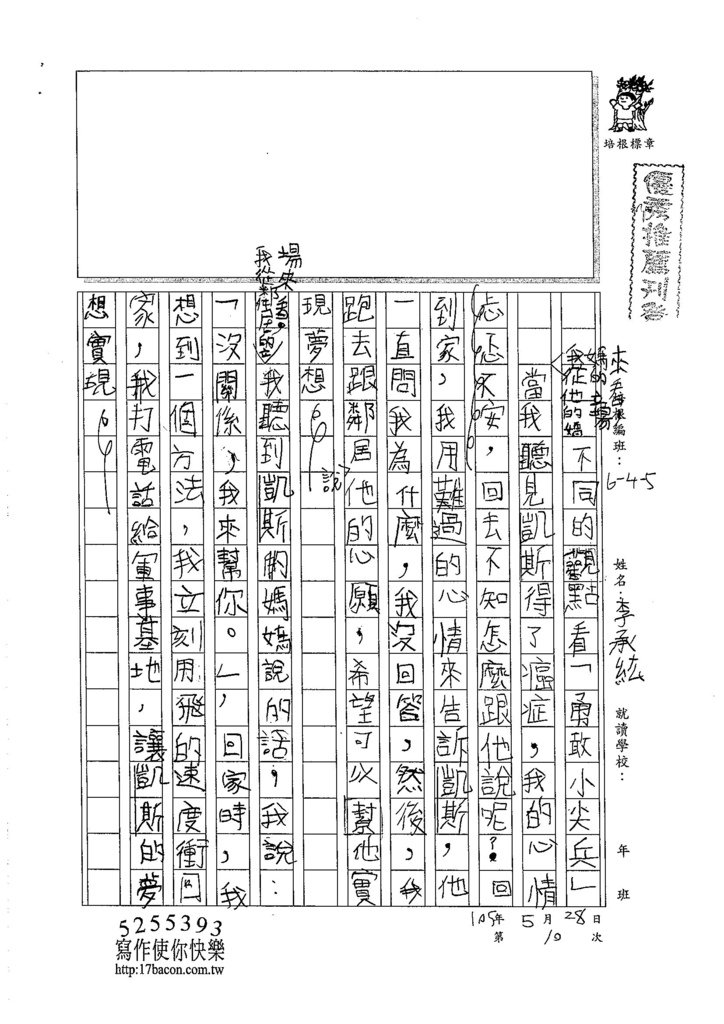 培根標章
優秀推薦刊登
編班：6-4-5
姓名：李承紘
就讀學校：
年
班
不同的觀點看「勇敢小尖兵」
我從他的媽媽的立場來看
當我聽見凱斯得了癌症，我的心情
忐忑不安，回去不知怎麼跟他說呢？回
到家，我用難過的心情來告訴凱斯，他
一直問我為什麼，我沒回答，然後，我
跑去跟鄰居說他的心願，希望可以幫他實
現夢想。
我從鄰居的立場來看。
我聽到凱斯的媽媽說的話，我說：
「沒關係，我來幫你。」，回家時，我
想到一個方法，我立刻用飛的速度衝回
家，我打電話給軍事基地，讓凱斯的夢
想實現。
105年5月28日
第10次
5255393
寫作使你快樂
http:17bacon.com.tw